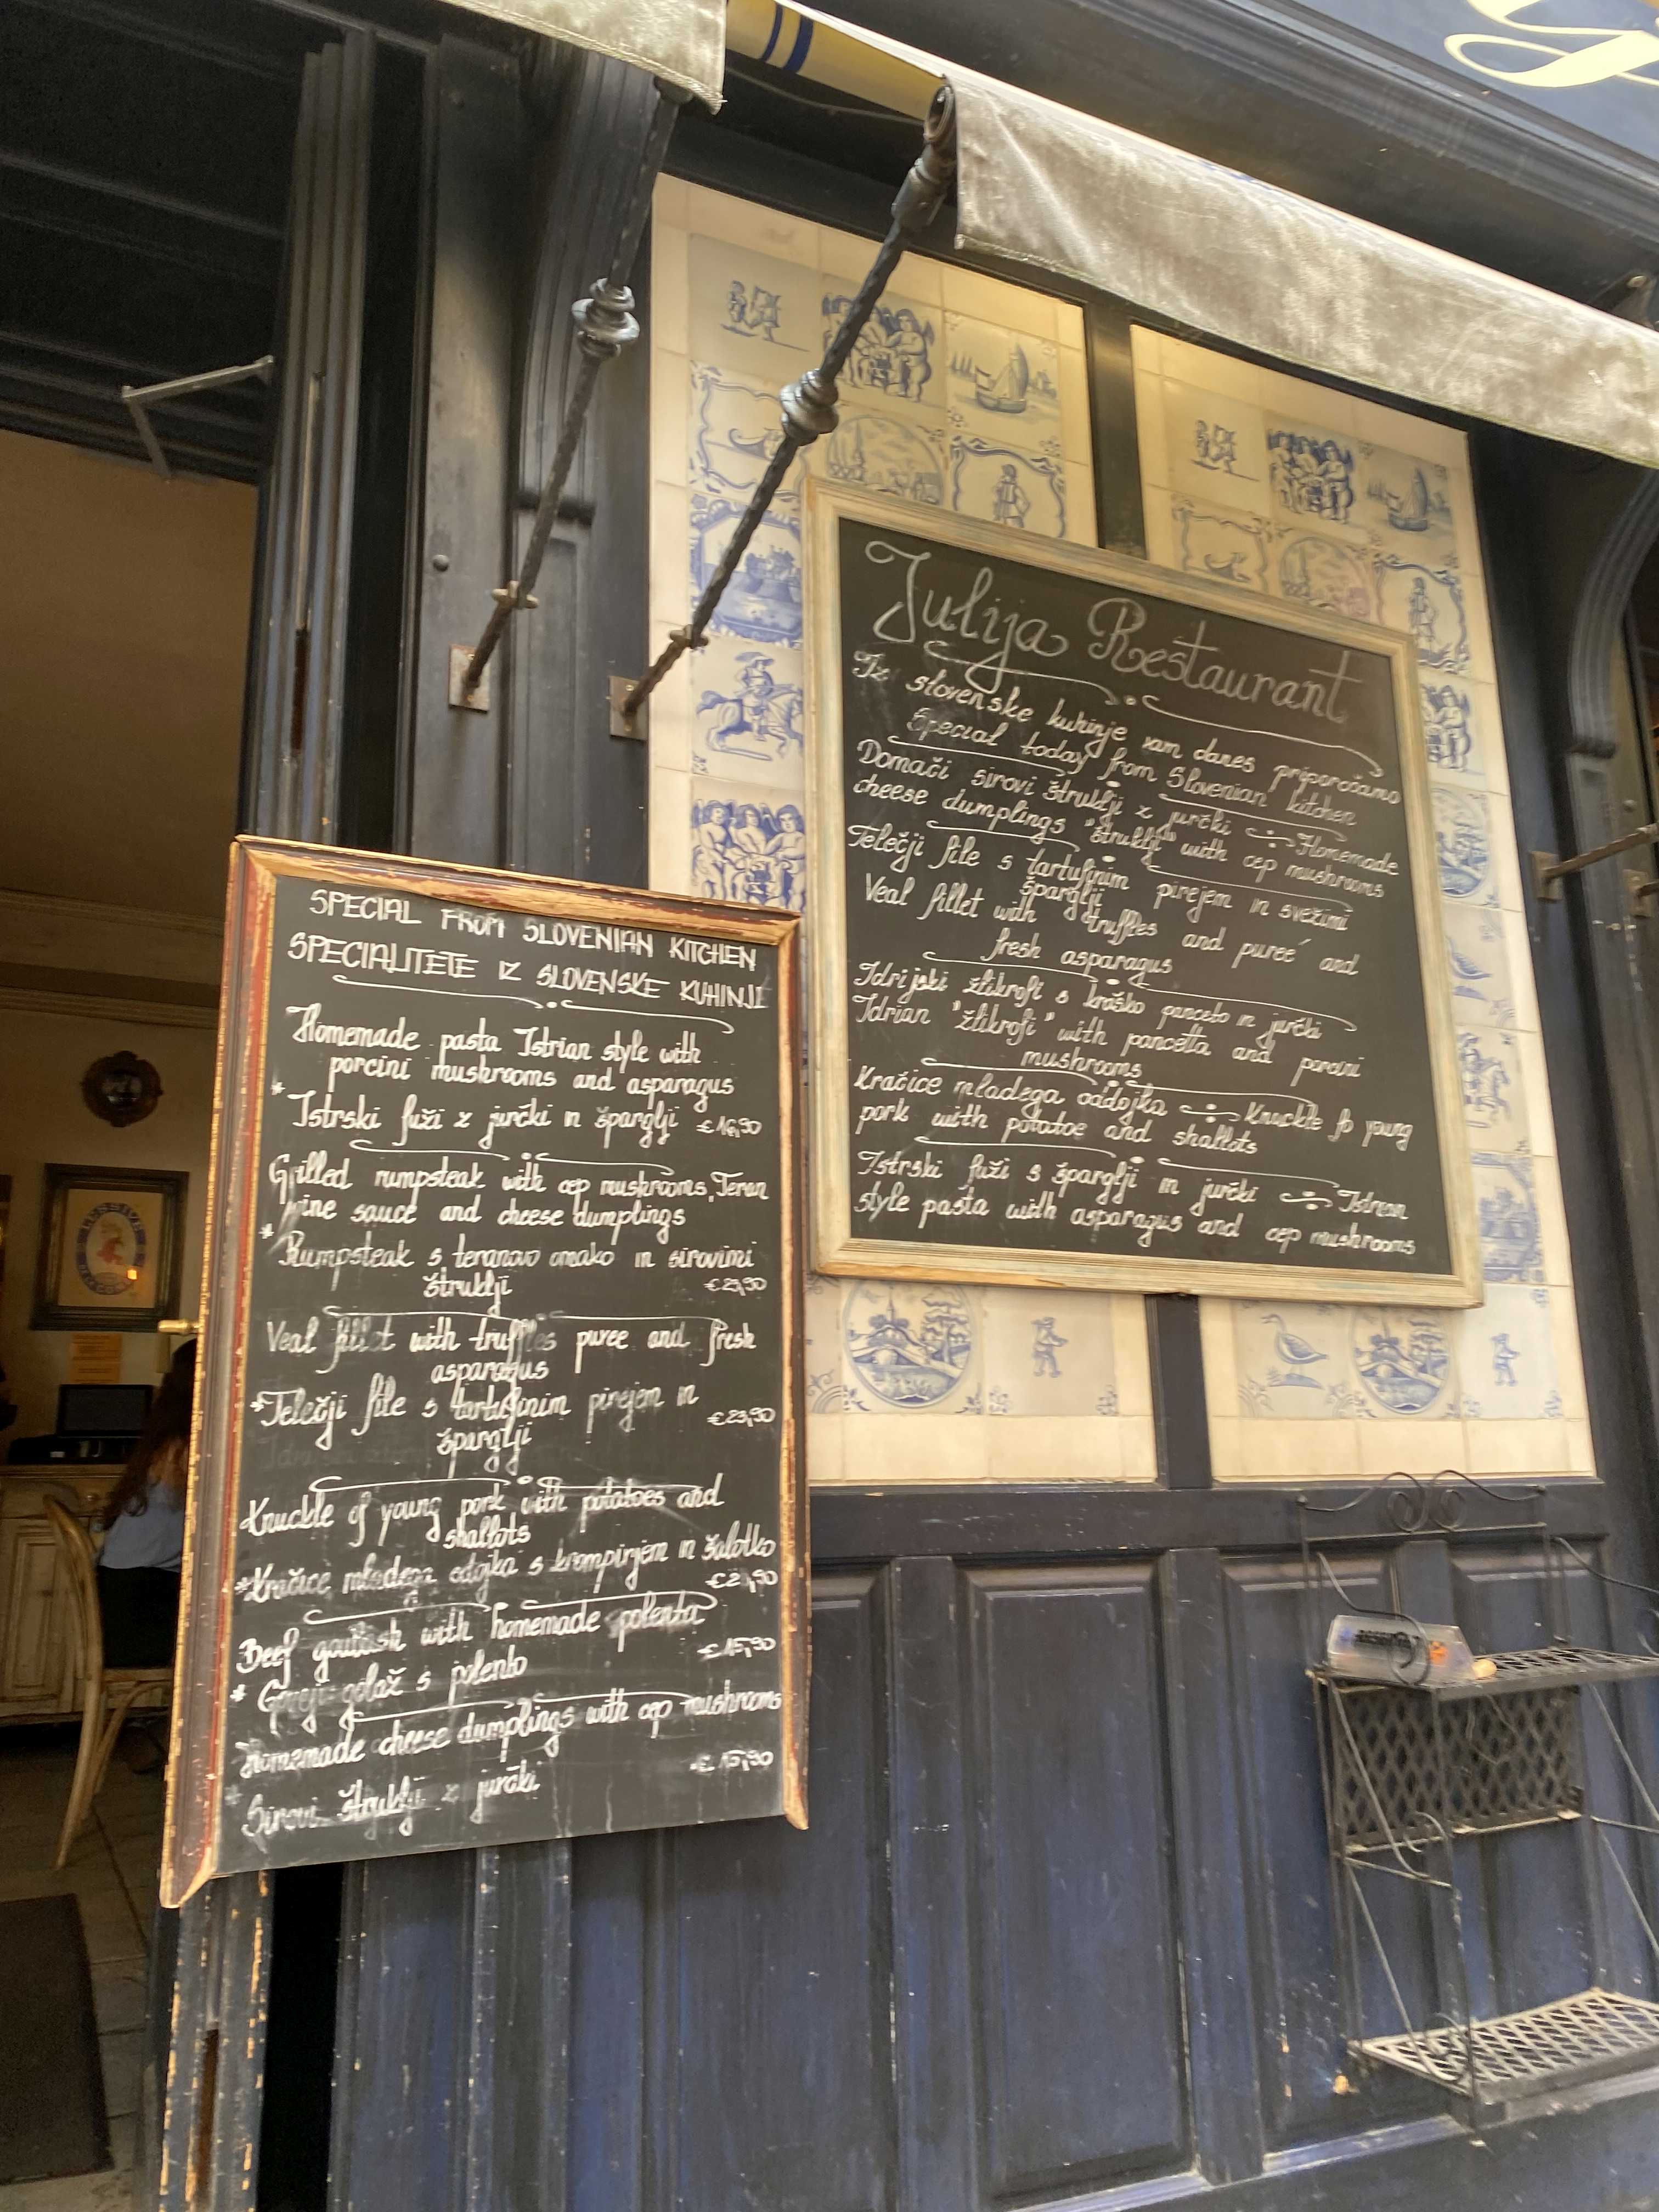 SPECIAL FROM SLOVENIAN KITCHEN
SPECIALITETE IZ SLOVENSKE KUHINJE
Homemade pasta Istrian style with
porcini mushrooms and asparagus
* Istrski fuži z jurčki in šparglji €16,90
Grilled rumpsteak with cep mushrooms, Teran
wine sauce and cheese dumplings
* Rumpsteak s teranovo omako in sirovimi
štruklji €29,90
Veal fillet with truffles puree and fresh
asparagus
*Telečji file s tartufinim pirejem in
šparglji €23,90
Knuckle of young pork with potatoes and
shallots
*Kračice mladega odojka s krompirjem in šalotko
Beef goulash with homemade polenta
€15,90
* Goveji golaž s polento
Homemade cheese dumplings with cep mushrooms
€15,90
* Sirovi štruklji z jurčki
Julija Restaurant
Iz slovenske kuhinje vam danes priporočamo
Special today from Slovenian kitchen
Domači sirovi štruklji z jurčki Homemade
cheese dumplings "štruklji" with cep mushrooms
Telečji file s tartufinim pirejem in svežimi
šparglji
Veal fillet with truffles and pureé and
fresh asparagus
Idrijski žlikrofi s kraško panceto in jurčki
Idrian "žlikrofi" with pancetta and porcini
mushrooms
Kračice mladega odojka Knuckle fo young
pork with potatoe and shallots
Istrski fuži s šparglji in jurčki Istrian
style pasta with asparagus and cep mushrooms